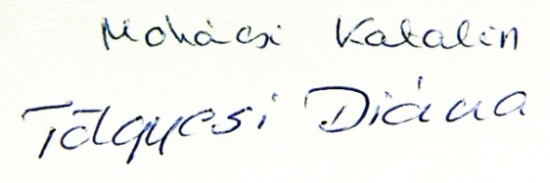 Mohácsi Katalin
Tölgyesi Diána